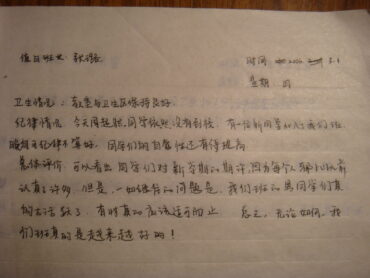 值日班长：
时间 3.1
星期：四
卫生情况：教室与卫生区保持良好
纪律情况：今天同起强，同学依然没有到位，有一位新同学加入了我们班，
晚自习纪律不算好，同学们的自觉性还有待提高
总体评价：可以看出同学们对新学期的期许，因为每个人都比以前
认真了许多，但是，一如继往的问题是，我们班的男同学们真
的太活跃了，有时真的应该适可而止 总之，无论如何，我
们班真的是越来越好的！